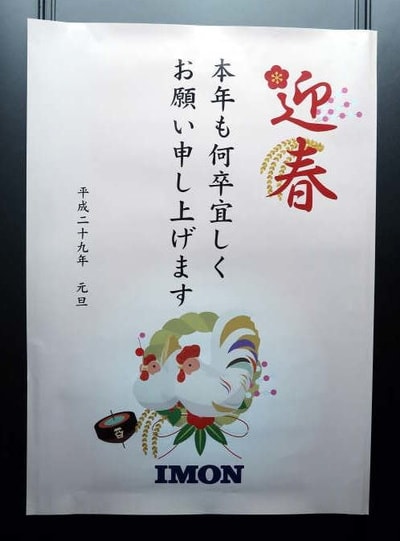 迎春
本年も何卒宜しく
お願い申し上げます
平成二十九年 元旦
IMON